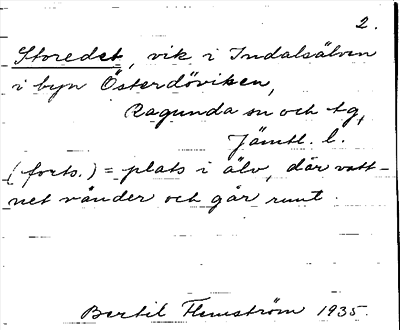 2.
Storedet, vik i Indalsälven
i byn Österdöviken,
Ragunda sn och tg,
Jämtl. l.
(forts.) = plats i älv, där vatt-
net vänder och går runt.
Bertil Flemström 1935.